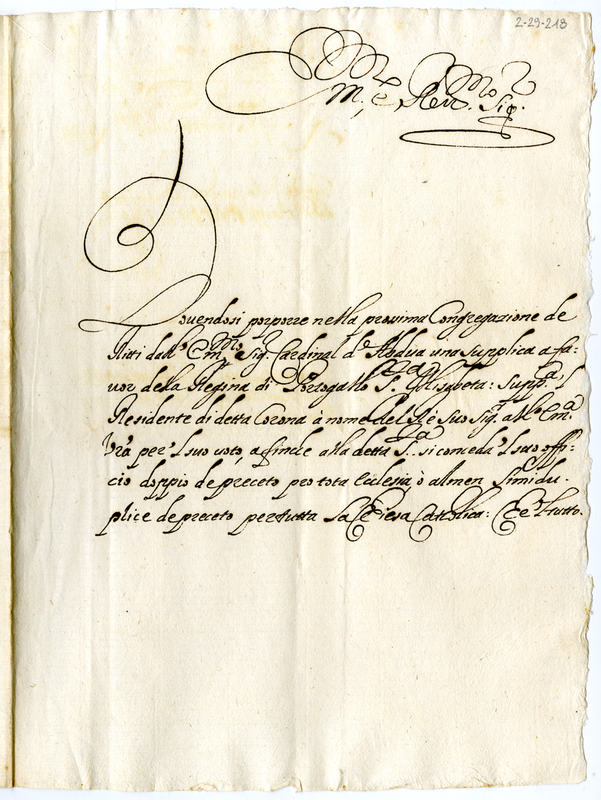 2-29-213
Em.mo è Reu.mo Sig.r
Douendosi porporre nella prossima Congregazione de
Ritti dall'Em.mo e Sig.r Cardinal d'Abdua una supplica a fa-
uor della Regina di Portogallo S.ta Elisabeta: supp.ca l
Residente di detta Corona à nome del Rè suo Sig.r all'Em.a
Vrã per 'l suo voto, a fin che alla detta S.ta si conceda 'l suo offi-
cio doppio de preceto pro tota Ecclesia, ò almen simidu-
plice de preceto per tutta la Chiesa Cattolica: Che è 'l tutto.